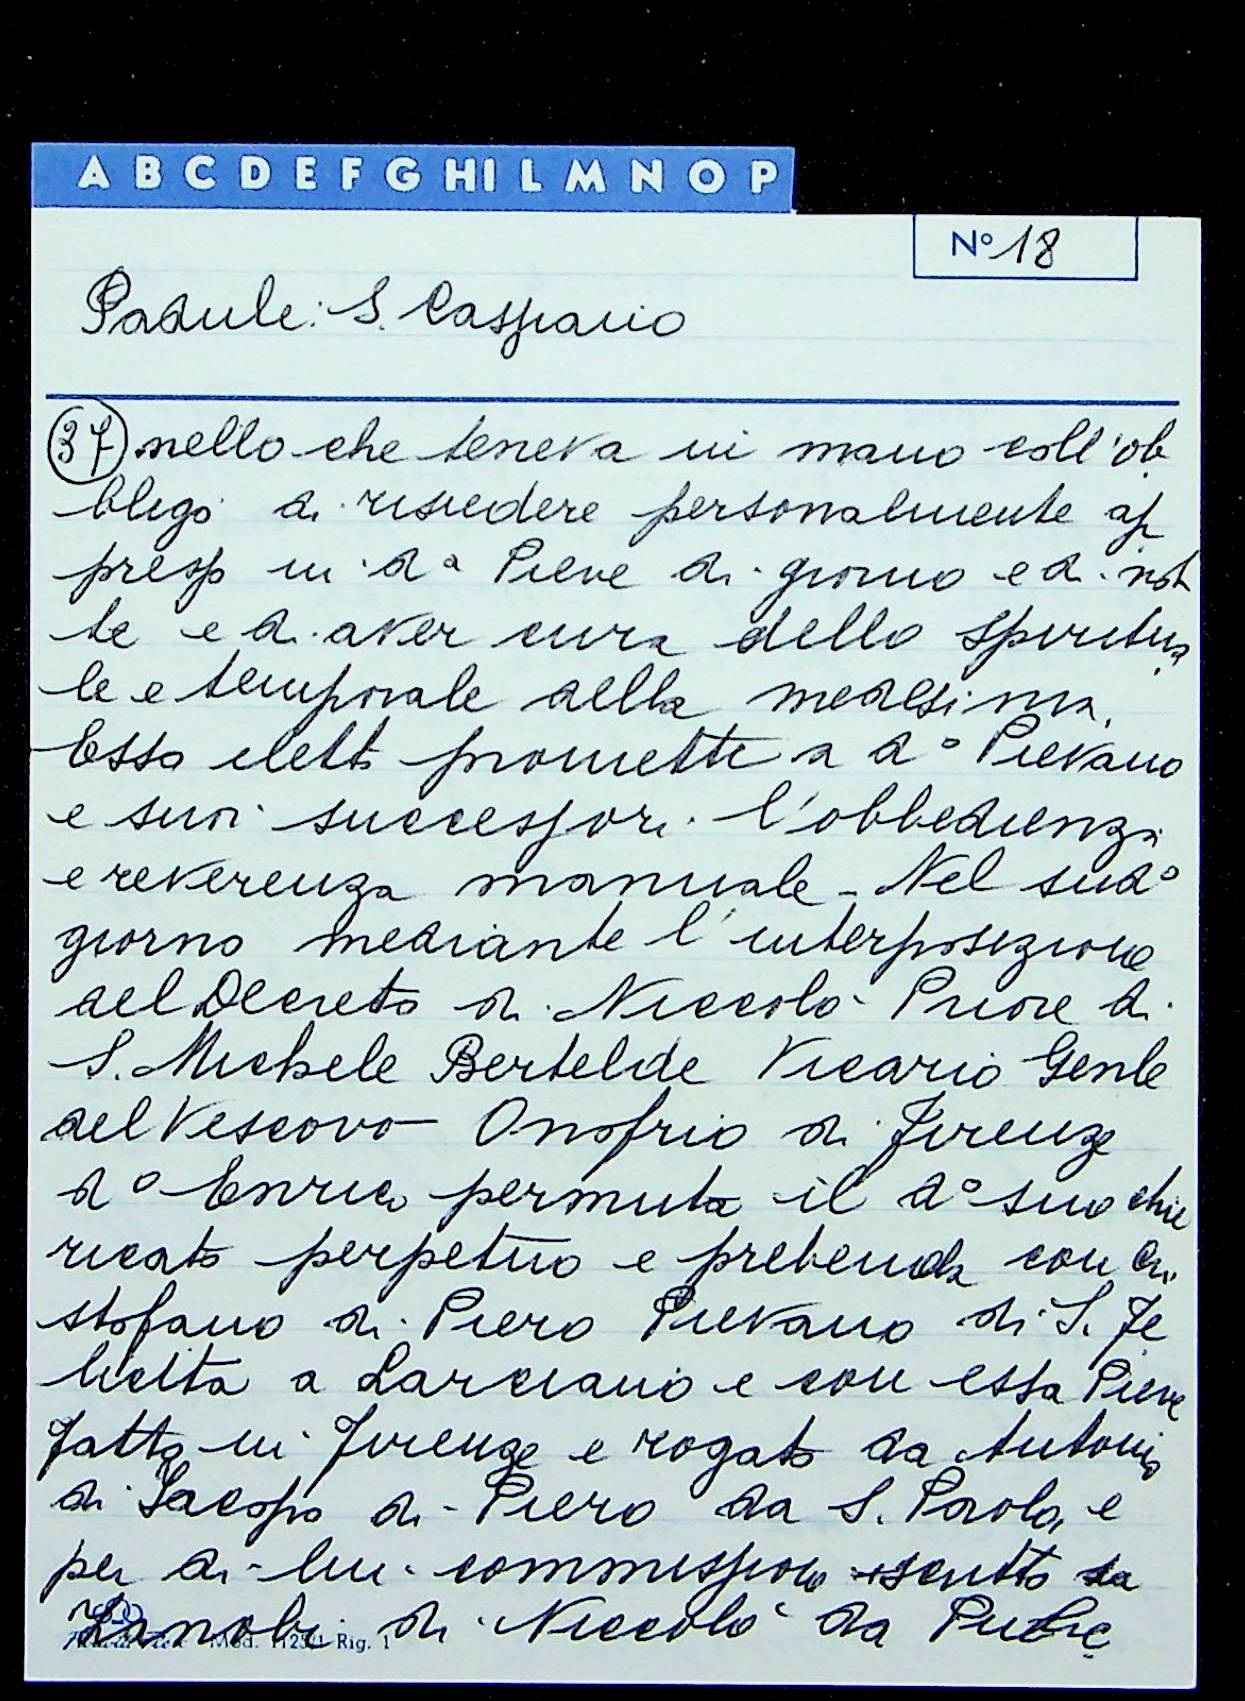 A B C D E F G H I L M N O P
N° 18
Padule: S. Caspiano
37 nello che teneva in mano coll'ob
bligo di risiedere personalmente ap
presso in d.a Pieve di giorno e di not
te e di aver cura dello spiritua
le e temporale della medesima.
Esso eletto promette a d° Pievano
e suoi successori l'obbedienza
e reverenza manuale - Nel sud°
giorno mediante l'interposizione
del Decreto di Niccolò Priore di
S. Michele Bertelde Vicario Genle
del Vescovo Onofrio di Firenze
d° Enrico permuta il d° suo chie
ricato perpetuo e prebenda con Cri
stofano di Piero Pievano di S. Fe
licita a Larciano e con essa Pieve
fatto in Firenze e rogato da Antonio
di Iacopo di Piero da S. Paolo, e
per di lui commissione scritto da
Zanobi di Niccolò da
Mod. 125/1 Rig. 1